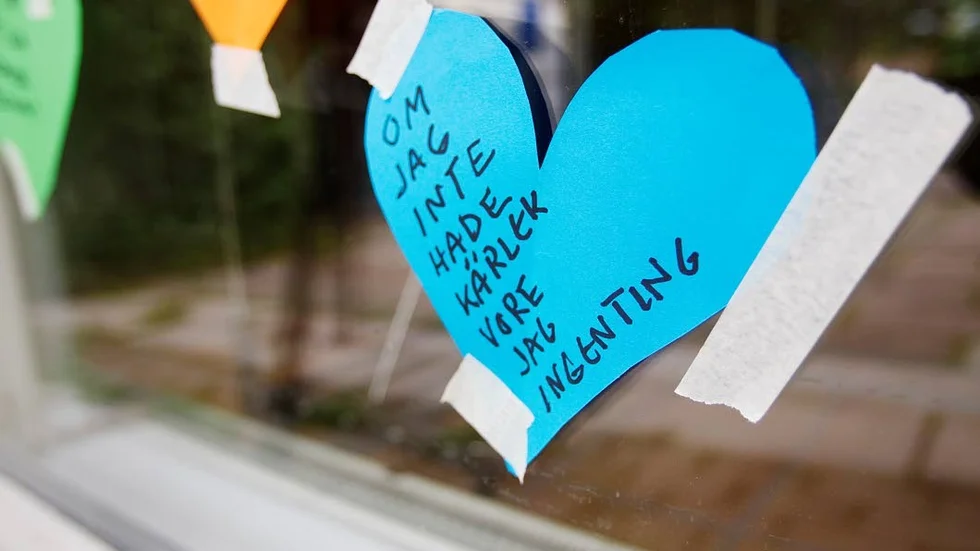 OM
JAG
INTE
HADE
KÄRLEK
VORE
JAG
INGENTING